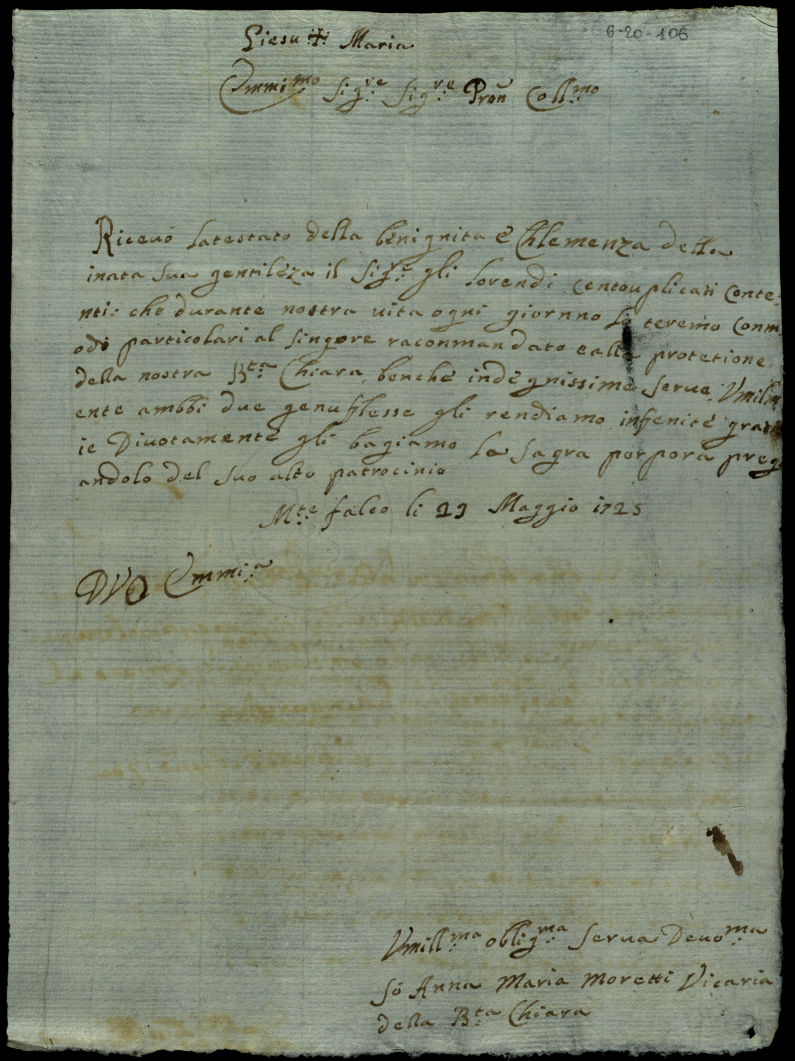 6-20-106
Giesu ✝ Maria
Emmi:mo Sig:re Sig:re Pron Coll:mo
Riceuo latestato della benignita è Chlemenza della
inata sua gentilèza il Sig:re gli lorendi centouplicati Conte-
nti: che durante nostra uita ogni giornno lo teremo Conm-
odi particolari al singore racommandato e alla protetione
della nostra B:ta Chiara, benche indegnissime serue, Vmilm-
ente ambbi due genuflesse gli rendiamo infenite graz-
ie Diuotamente gli bagiamo la Sagra porpora preg-
andolo del suo alto patrocinio
M:te falco li 23 Maggio 1725
DVO Emmi:a
Vmill:ma oblig:ma Serua Deuo:ma
So Anna Maria Moretti Vicaria
della B:ta Chiara